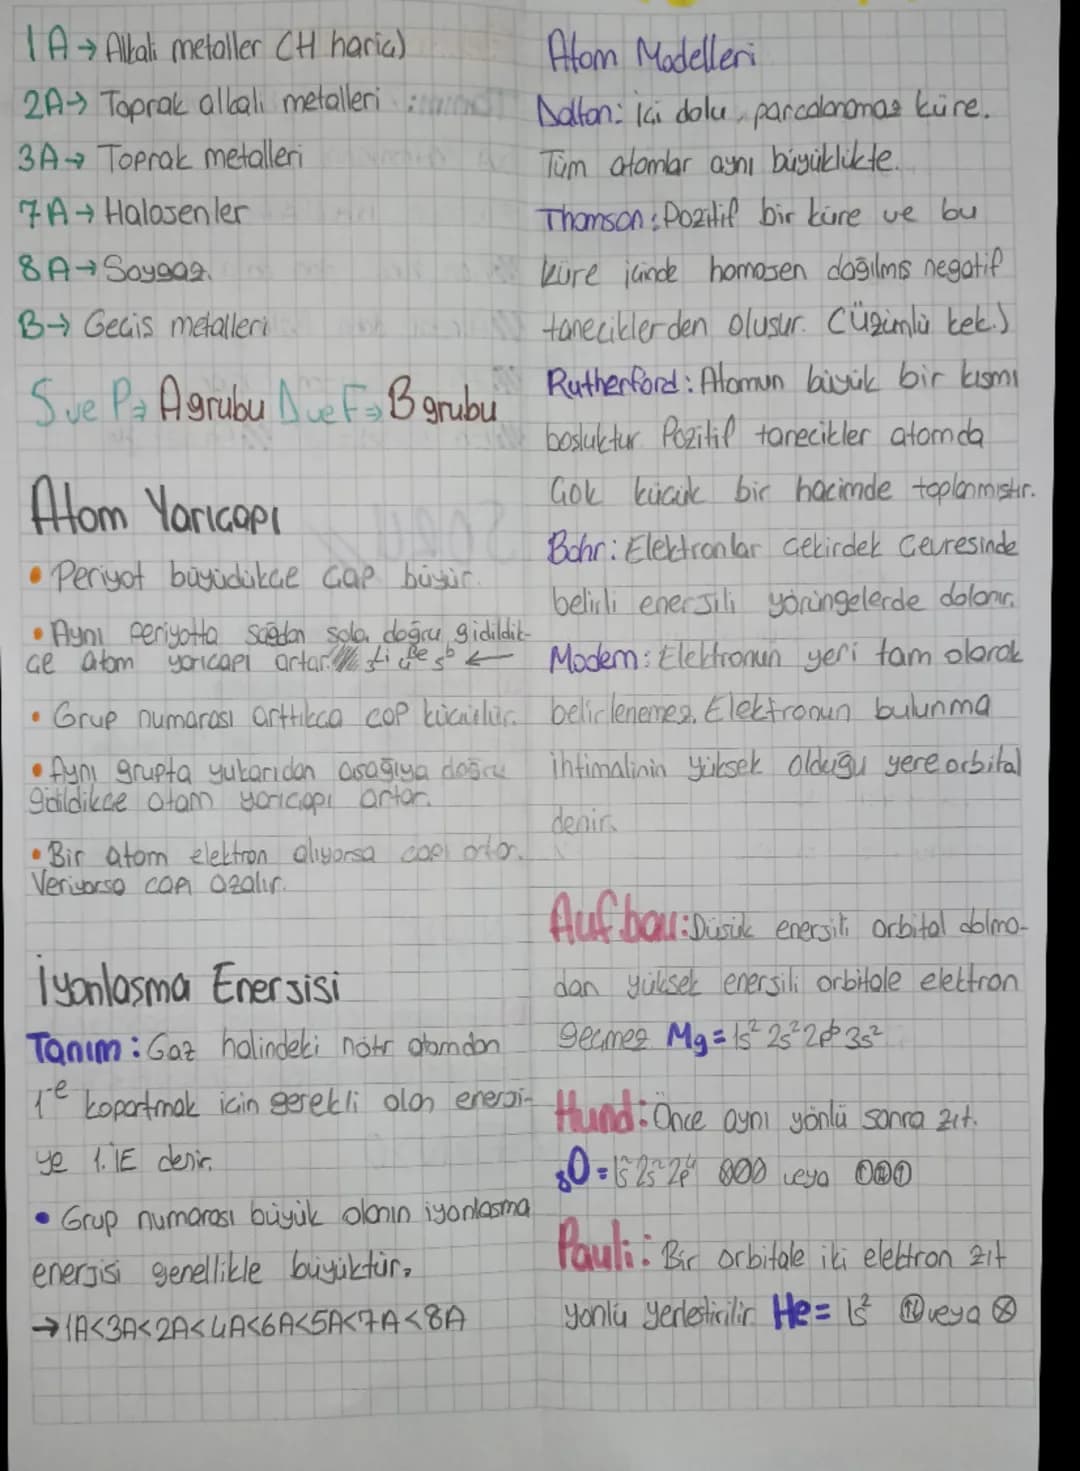 1A → Alkali metaller (H hariç)
2A → Toprak alkali metalleri
3A → Toprak metalleri
7A → Halojenler
8A → Soygaz
B → Geçis metalleri
S ve P → A grubu D ve F → B grubu
Atom Yarıçapı
• Periyot büyüdükçe çap büyür.
• Aynı periyotta sağdan sola doğru gidildik-
çe atom yarıçapı artar. Li Be 5b ←
• Grup numarası arttıkca çap küçülür.
• Aynı grupta yukarıdan asağıya doğru
gidildikçe atom yarıçapı artar.
• Bir atom elektron alıyorsa çapı artar.
Veriyorsa çapı azalır.
İyonlasma Enerjisi
Tanım: Gaz halindeki nötr atomdan
1e⁻ kopartmak için gerekli olan enerji-
ye 1.İE denir.
• Grup numarası büyük olanın iyonlasma
enerjisi genellikle büyüktür.
→ 1A<3A<2A<4A<6A<5A<7A<8A
Atom Modelleri
Dalton: İçi dolu, parçalanamaz küre.
Tüm atomlar aynı büyüklükte.
Thomson: Pozitif bir küre ve bu
küre içinde homojen dağılmıs negatif
taneciklerden olusur. (Üzümlü kek.)
Rutherford: Atomun büyük bir kısmı
bosluktur. Pozitif tanecikler atomda
Çok küçük bir hacimde toplanmıstır.
Bohr: Elektronlar Çekirdek Çevresinde
belirli enerjili yörüngelerde dolanır.
Modern: Elektronun yeri tam olarak
belirlenemez. Elektronun bulunma
ihtimalinin yüksek olduğu yere orbital
denir.
Aufbau: Düsük enerjili orbital dolma-
dan yüksek enerjili orbitale elektron
geçmez Mg = 1s² 2s² 2p⁶ 3s²
Hund: Önce aynı yönlü sonra zıt.
₈O = 1s² 2s² 2p⁴ veya
Pauli: Bir orbitale iki elektron zıt
yönlü yerlestirilir. He = 1s² veya